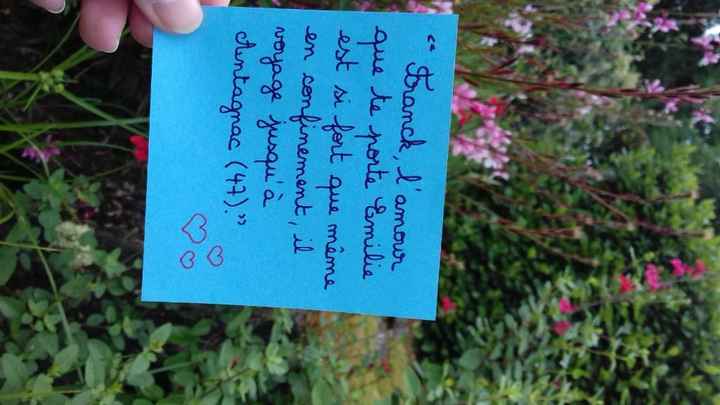 “ Franck, l'amour
que te porte Emilie
est si fort que même
en confinement, il
voyage jusqu'à
Antagnac (47).”